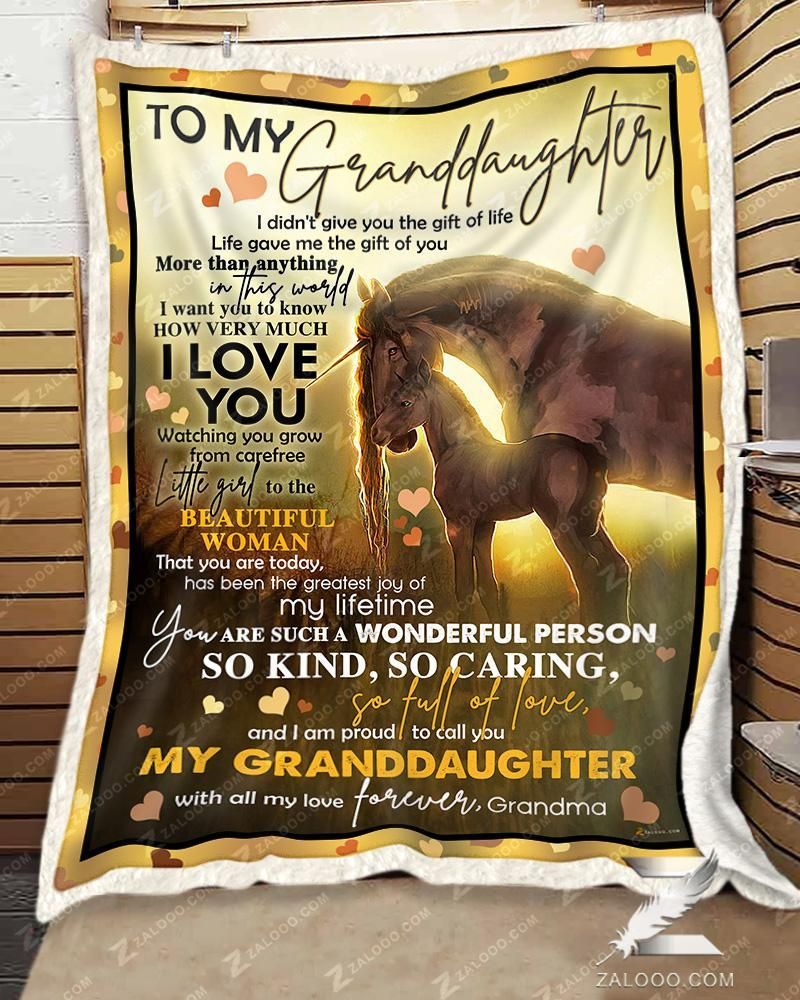 TO MY Granddaughter
I didn't give you the gift of life
Life gave me the gift of you
More than anything
in this world
I want you to know
HOW VERY MUCH
I LOVE
YOU
Watching you grow
from carefree
Little girl to the
BEAUTIFUL
WOMAN
That you are today,
has been the greatest joy of
my lifetime
You ARE SUCH A WONDERFUL PERSON
SO KIND, SO CARING,
so full of love,
and I am proud to call you
MY GRANDDAUGHTER
with all my love forever, Grandma
ZALOOO.COM
ZALOOO.COM